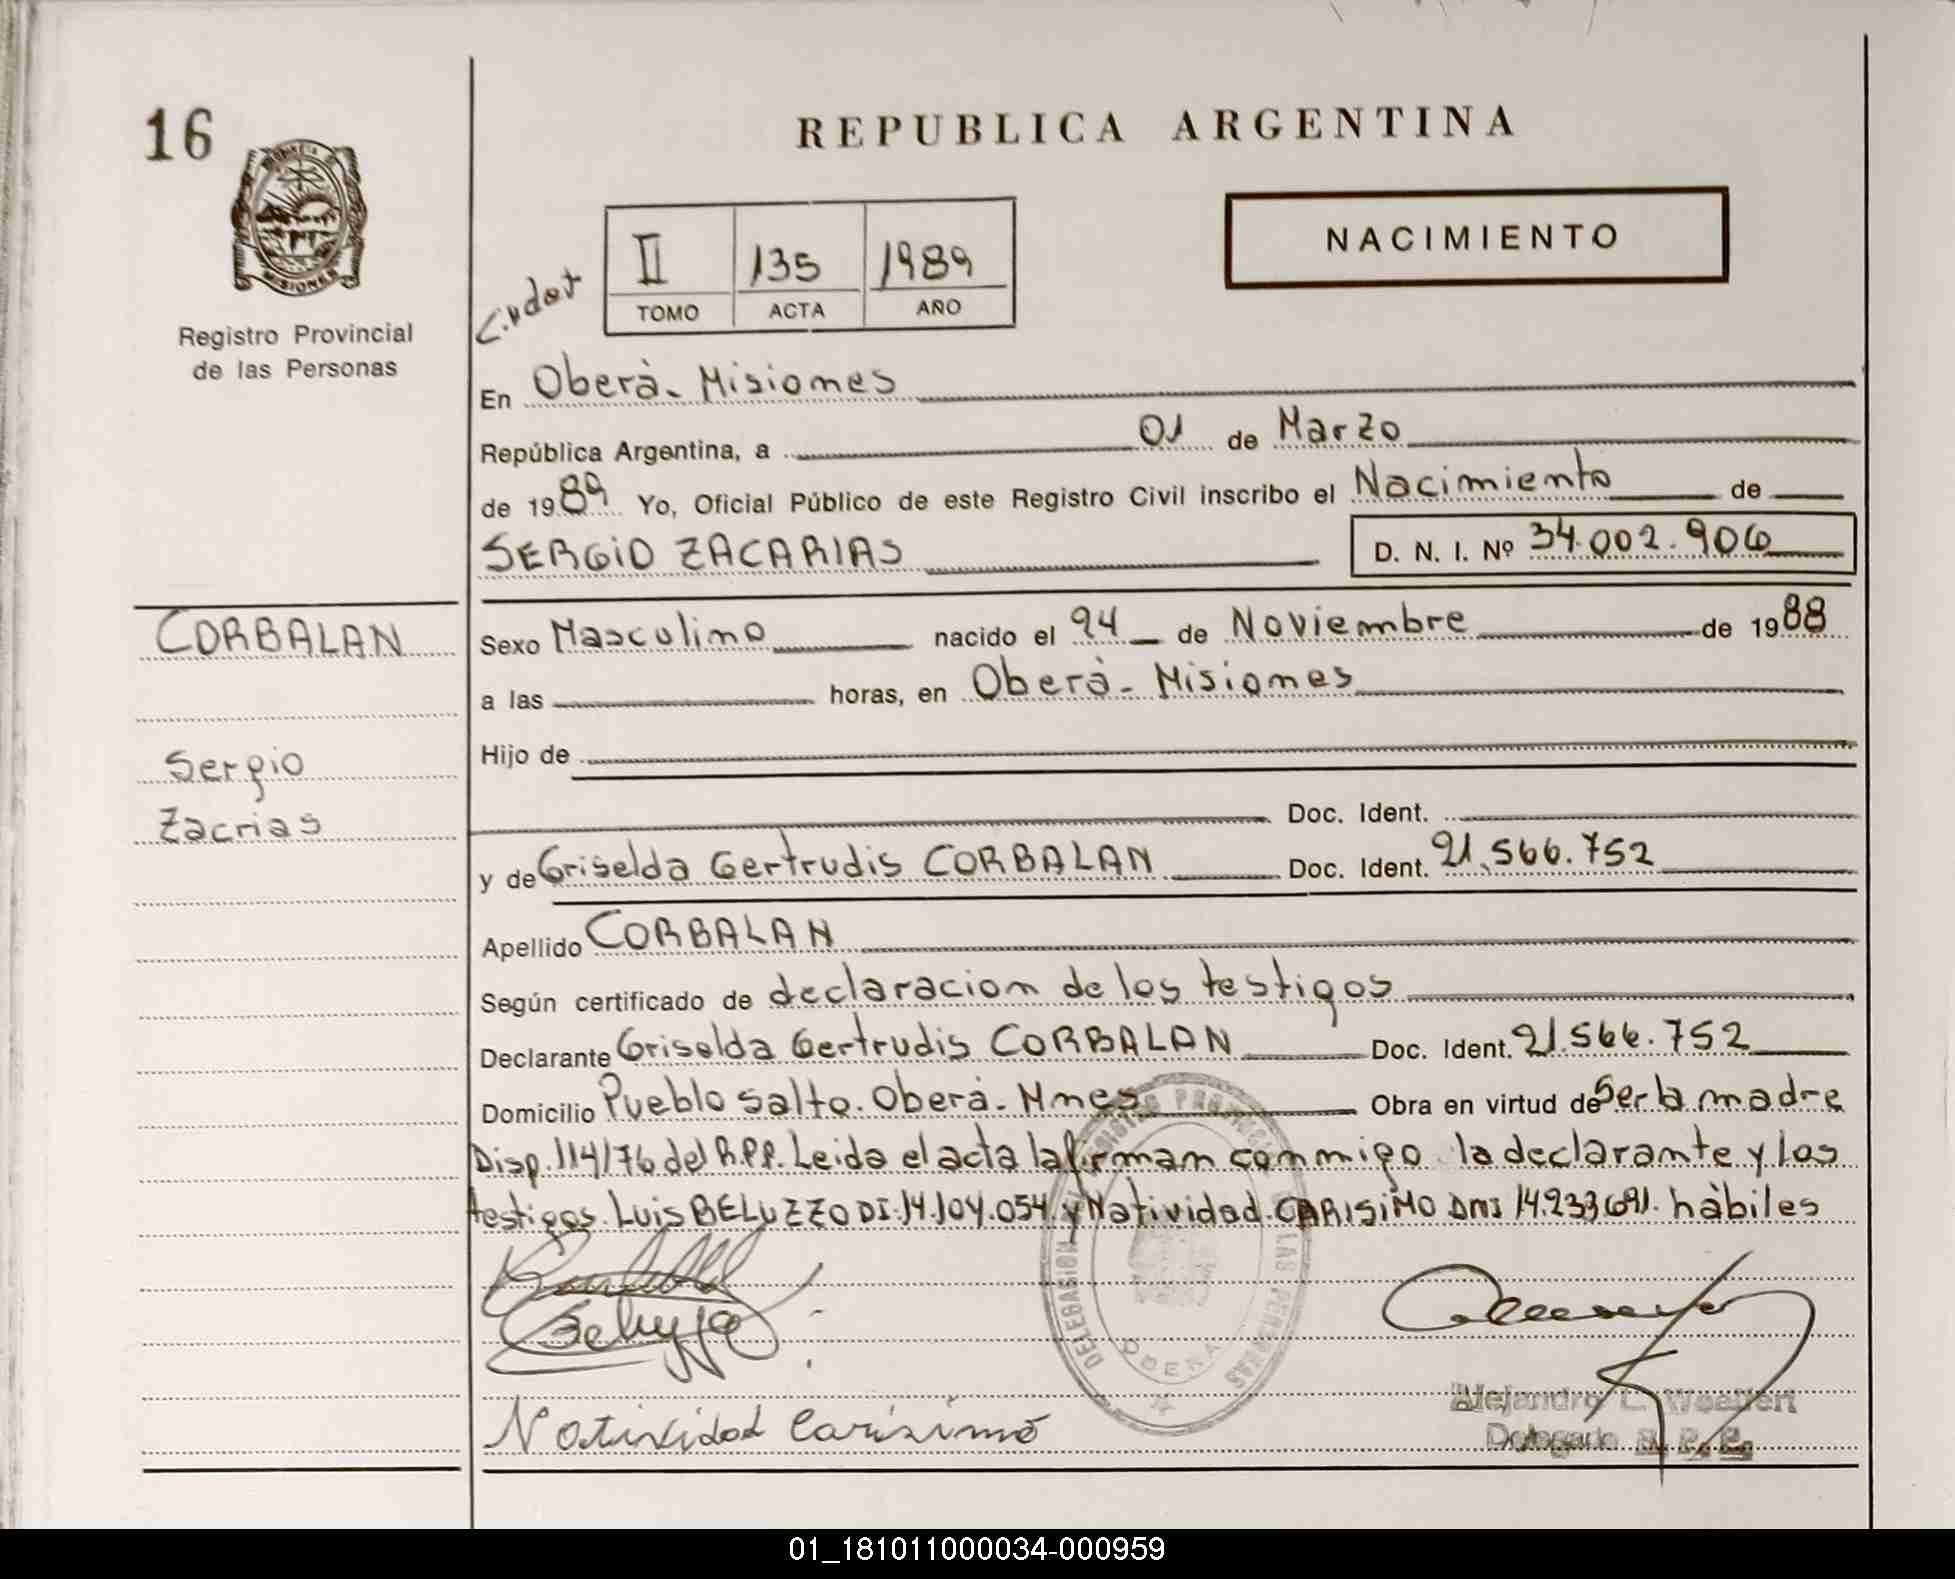 16
REPUBLICA ARGENTINA
NACIMIENTO
II 135 1989
TOMO ACTA AÑO
Registro Provincial
de las Personas
En Oberà - Misiones
República Argentina, a 01 de Marzo
de 1989 Yo, Oficial Público de este Registro Civil inscribo el Nacimiento de
SERGIO ZACARIAS D. N. I. Nº 34.002.906
CORBALAN
Sexo Masculino nacido el 24 de Noviembre de 1988
a las horas, en Oberà - Misiones
Hijo de
Sergio
Zacrias
Doc. Ident.
y de Griselda Gertrudis CORBALAN Doc. Ident. 21.566.752
Apellido CORBALAN
Según certificado de declaracion de los testigos
Declarante Griselda Gertrudis CORBALAN Doc. Ident. 21.566.752
Domicilio Pueblo Salto. Oberà - Mnes Obra en virtud de ser la madre
Disp. 114/76 del R.P.P. Leida el acta la firman conmigo la declarante y los
testigos. Luis BELUZZO DI. 14.104.054 y Natividad CARISIMO DNI 14.233.691. hàbiles
DELEGACION REGISTRO PROVINCIAL DE LAS PERSONAS
OBERA
Natividad Carisimo
Alejandro L.
Delegado R. P. P.
01_181011000034-000959